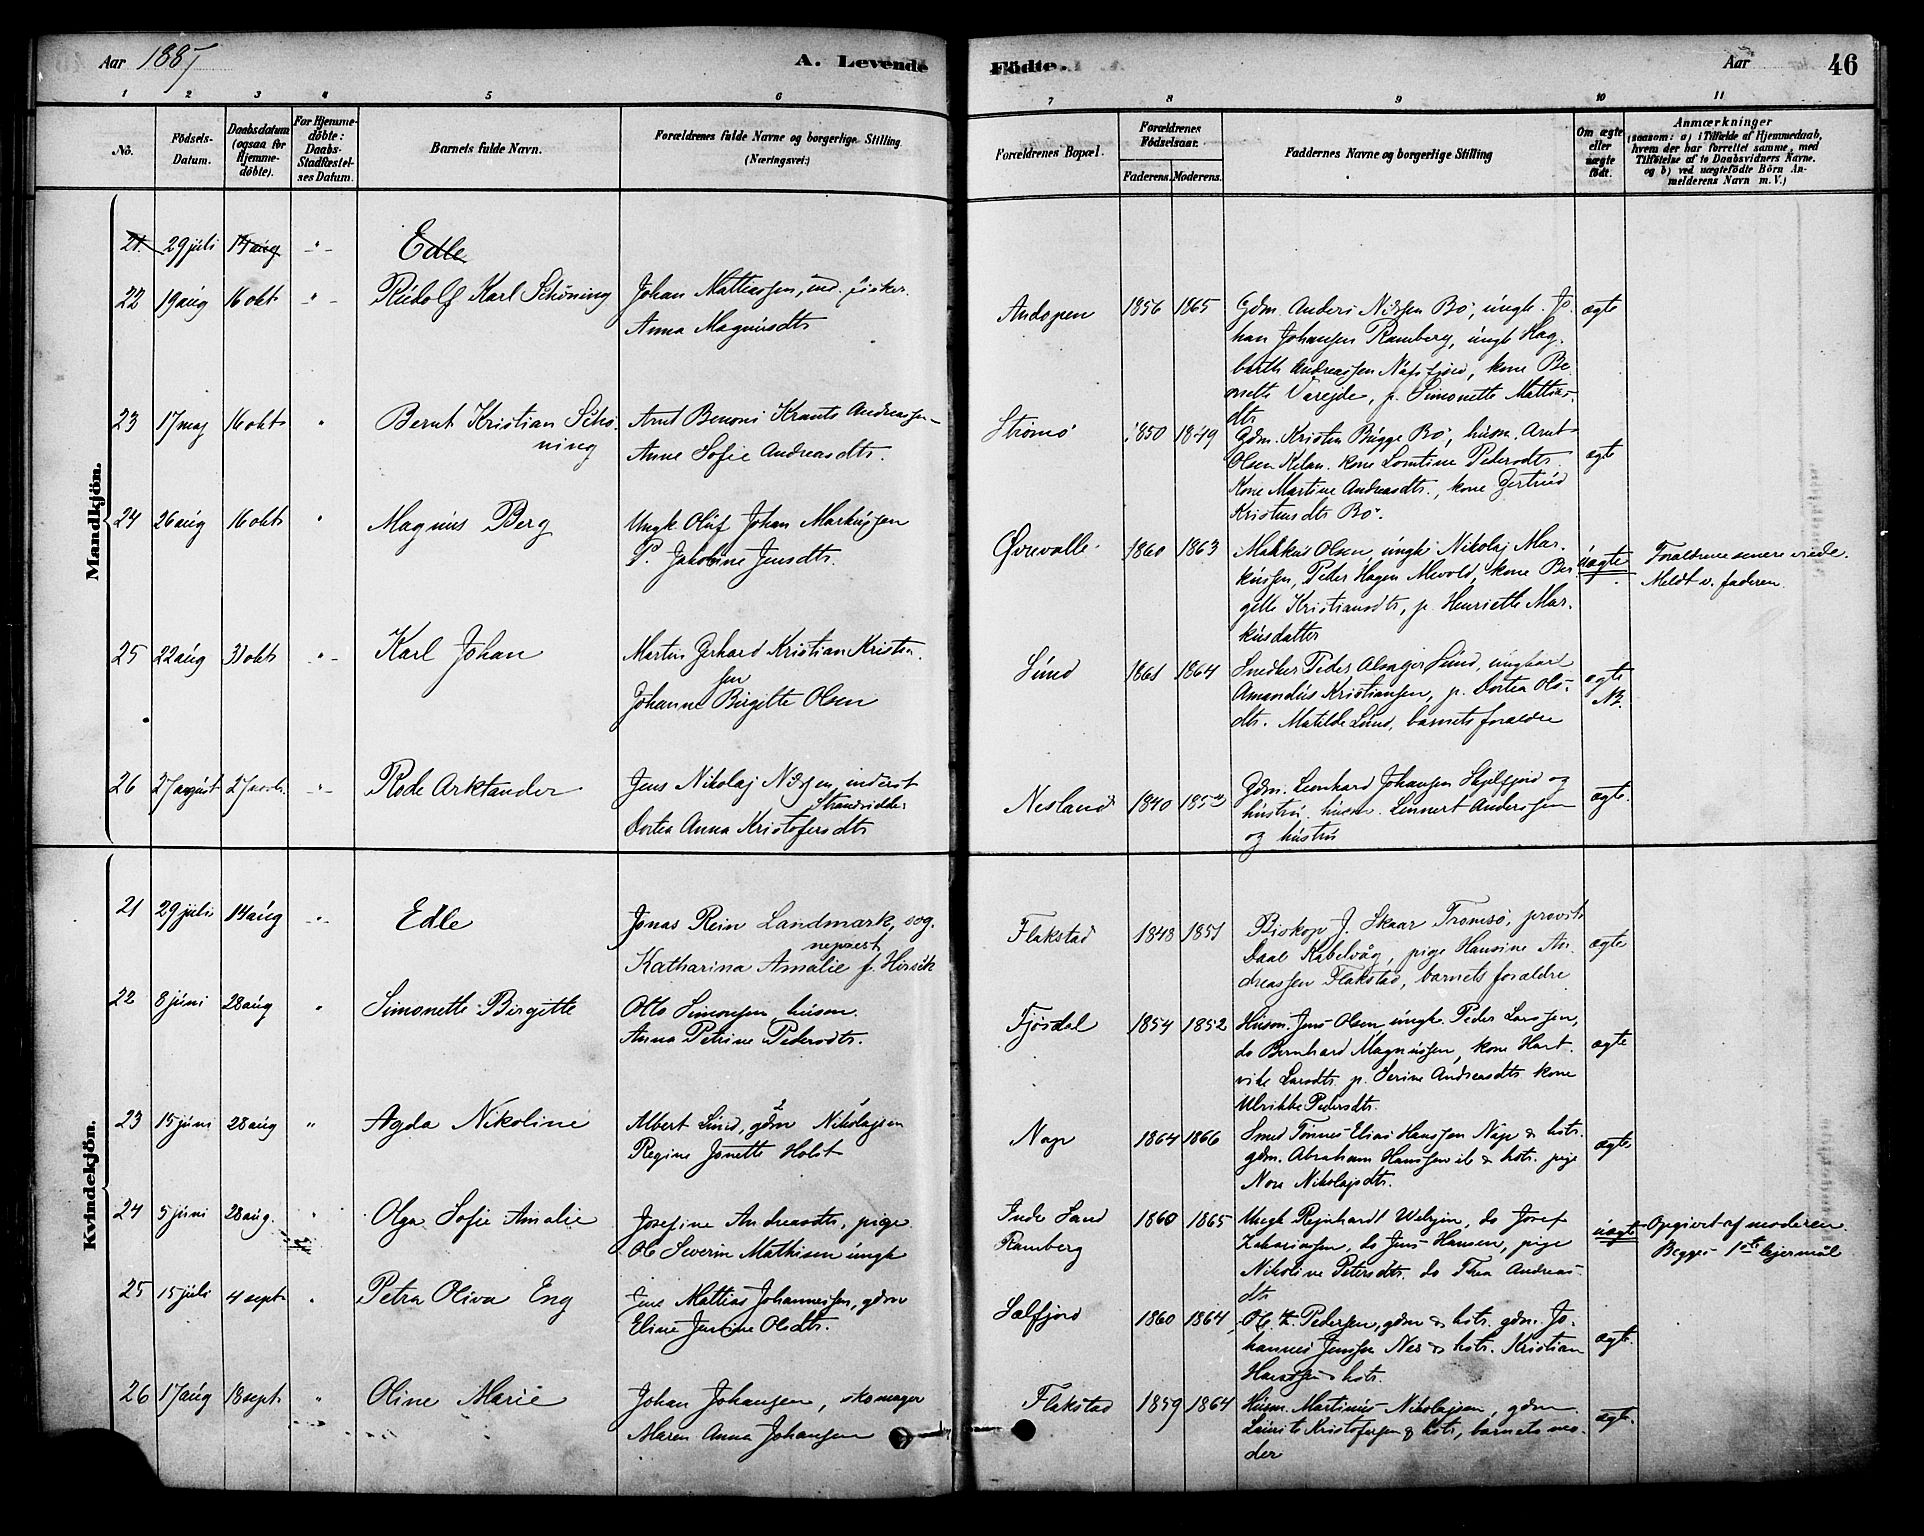 Aar 1887
A. Levende
Födte.
Aar
46
1 2 3 4 5 6 7 8 9 10 11
No.
Födsels-
Datum.
Daabsdatum
(ogsaa for
Hjemme-
döbte).
For Hjemme-
döbte:
Daabs-
Stadfæstel-
ses Datum.
Barnets fulde Navn.
Forældrenes fulde Navne og borgerlige Stilling
(Næringsvei:)
Forældrenes Bopæl.
Forældrenes
Födselsaar.
Faderens. Moderens.
Faddernes Navne og borgerlige Stilling
Om ægte
eller
uægte
født.
Anmærkninger
(saasom: a) i Tilfælde af Hjemmedaab,
hvem der har forrettet samme, med
Tilföielse af to Daabsvidners Navne.
og b) ved uægtefödte Börn An-
melderens Navn m. V.)
Mandkjön.
21. 29 juli 14 aug " Edle
22 19 aug 16 okt " Rudolf Karl Schöning
Johan Mathiassen, ind. fisker.
Anna Magnusdtr
Andopen 1856 1865
Gdm. Anders Nilssen Bö, ungk. Jo-
han Johansen Ramberg, ungk Hag-
barth Andreassen Nufsfjord, kone Be-
nette Vareide, p. Simonette Mathias-
dtr
ægte
23 17 maj 16 okt " Bernt Kristian Schö-
ning
Arnt Benoni Krants Andreassen
Anne Sofie Andreasdtr.
Strömö 1850 1849
Gdm. Kristen Bugge Bö, husm. Arnt
Olsen Kilan. kone Lorntine Pedersdtr.
Kone Martine Andreasdtr., kone Gertrud
Kristensdtr Bö.
ægte
24 26 aug 16 okt " Magnus Berg
Ungk. Oluf Johan Markussen
P. Jakobine Jensdtr.
Övrevalle 1860 1863
Markus Olsen, ungk Nikolaj Mar-
kussen, Peder Hagen Mevold, kone Ber-
gette Kristiansdtr, p. Henriette Mar-
kusdatter
uægte
Forældrene senere viede.
Meldt v. faderen
25 22 aug 31 okt " Karl Johan
Martin Gerhard Kristian Kristen-
sen
Johanne Birgitte Olsen
Sund 1861 1864
Snedker Peder Alsager Sund, ungkarl
Amandus Kristiansen, p. Dortea Ols-
dtr. Matilde Sund, barnets forældre
ægte
NB.
26 27 august 27 novb. " Rode Arktander
Jens Nikolaj Nilssen, inderst
Strandsidder
Dortea Anna Kristofersdtr
Nesland 1840
Gdm. Leonhard Johansen Skjelfjord og
hustru. husm. Lennert Anderssen
og hustru
ægte.
Kvindekjön.
21 29 juli 14 aug " Edle
Jonas Rein Landmark, sog-
neprest
Katharina Amalie f. Hirsch
Flakstad 1848 1851
Biskop J. Skaar Tromsö, provst
Daae Kabelvåg, pige Hansine An-
dreassen Flakstad, barnets forældre
ægte
22 8 juni 28 aug " Simonette Birgitte
Otto Simonsen husm.
Anna Petrine Pedersdtr.
Fjösdal 1854 1852
Husm. Jens Olsen, ungk. Peder Larssen,
do Bernhard Magnussen, kone Hart-
vike Larsdtr. p. Serine Andreasdtr. kone
Ulrikke Pedersdtr.
ægte
23 15 juni 28 aug " Agda Nikoline
Albert Lind, gdm 2 Nikolajsen 1
Regine Jonette Holst
Nap 1864 1866
Smed Tönnes Elias Hanssen Nap & hstr.
gdm. Abraham Hanssen ib & hstr. pige
Nore Nikolajsdtr.
ægte
24 5 juni 28 aug. " Olga Sofie Amalie
Josefine Andreasdtr, pige
Ole Severin Mathisen ungk
Indre Sand
Ramberg
1860 1865
Ungk Rejnhardt do Josef
Zakariassen, do Jens Hansen, pige
Nikoline Petersdtr. do Thea Andreas-
dtr
uægte
Opgivet af moderen.
Begges 1ste lejermål
25 15 juli 4 sept. " Petra Oliva Eng
Jens Mattias Johannessen, gdm
Eline Justine Olsdtr.
Selfjord 1860 1864
Ole Z. Pedersen, gdm & hstr. gdm. Jo-
hannes Jenssen Nes & hstr. Kristian
Hanssen & hstr.
ægte.
26 17 aug 18 sept. " Oline Marie
Johan Johansen, skomager
Maren Anna Johansen
Flakstad 1859 1864
Husm. Martinus Nikolajsen, gdm.
Laurits Kristofersen & hstr, barnets mo-
der
ægte.